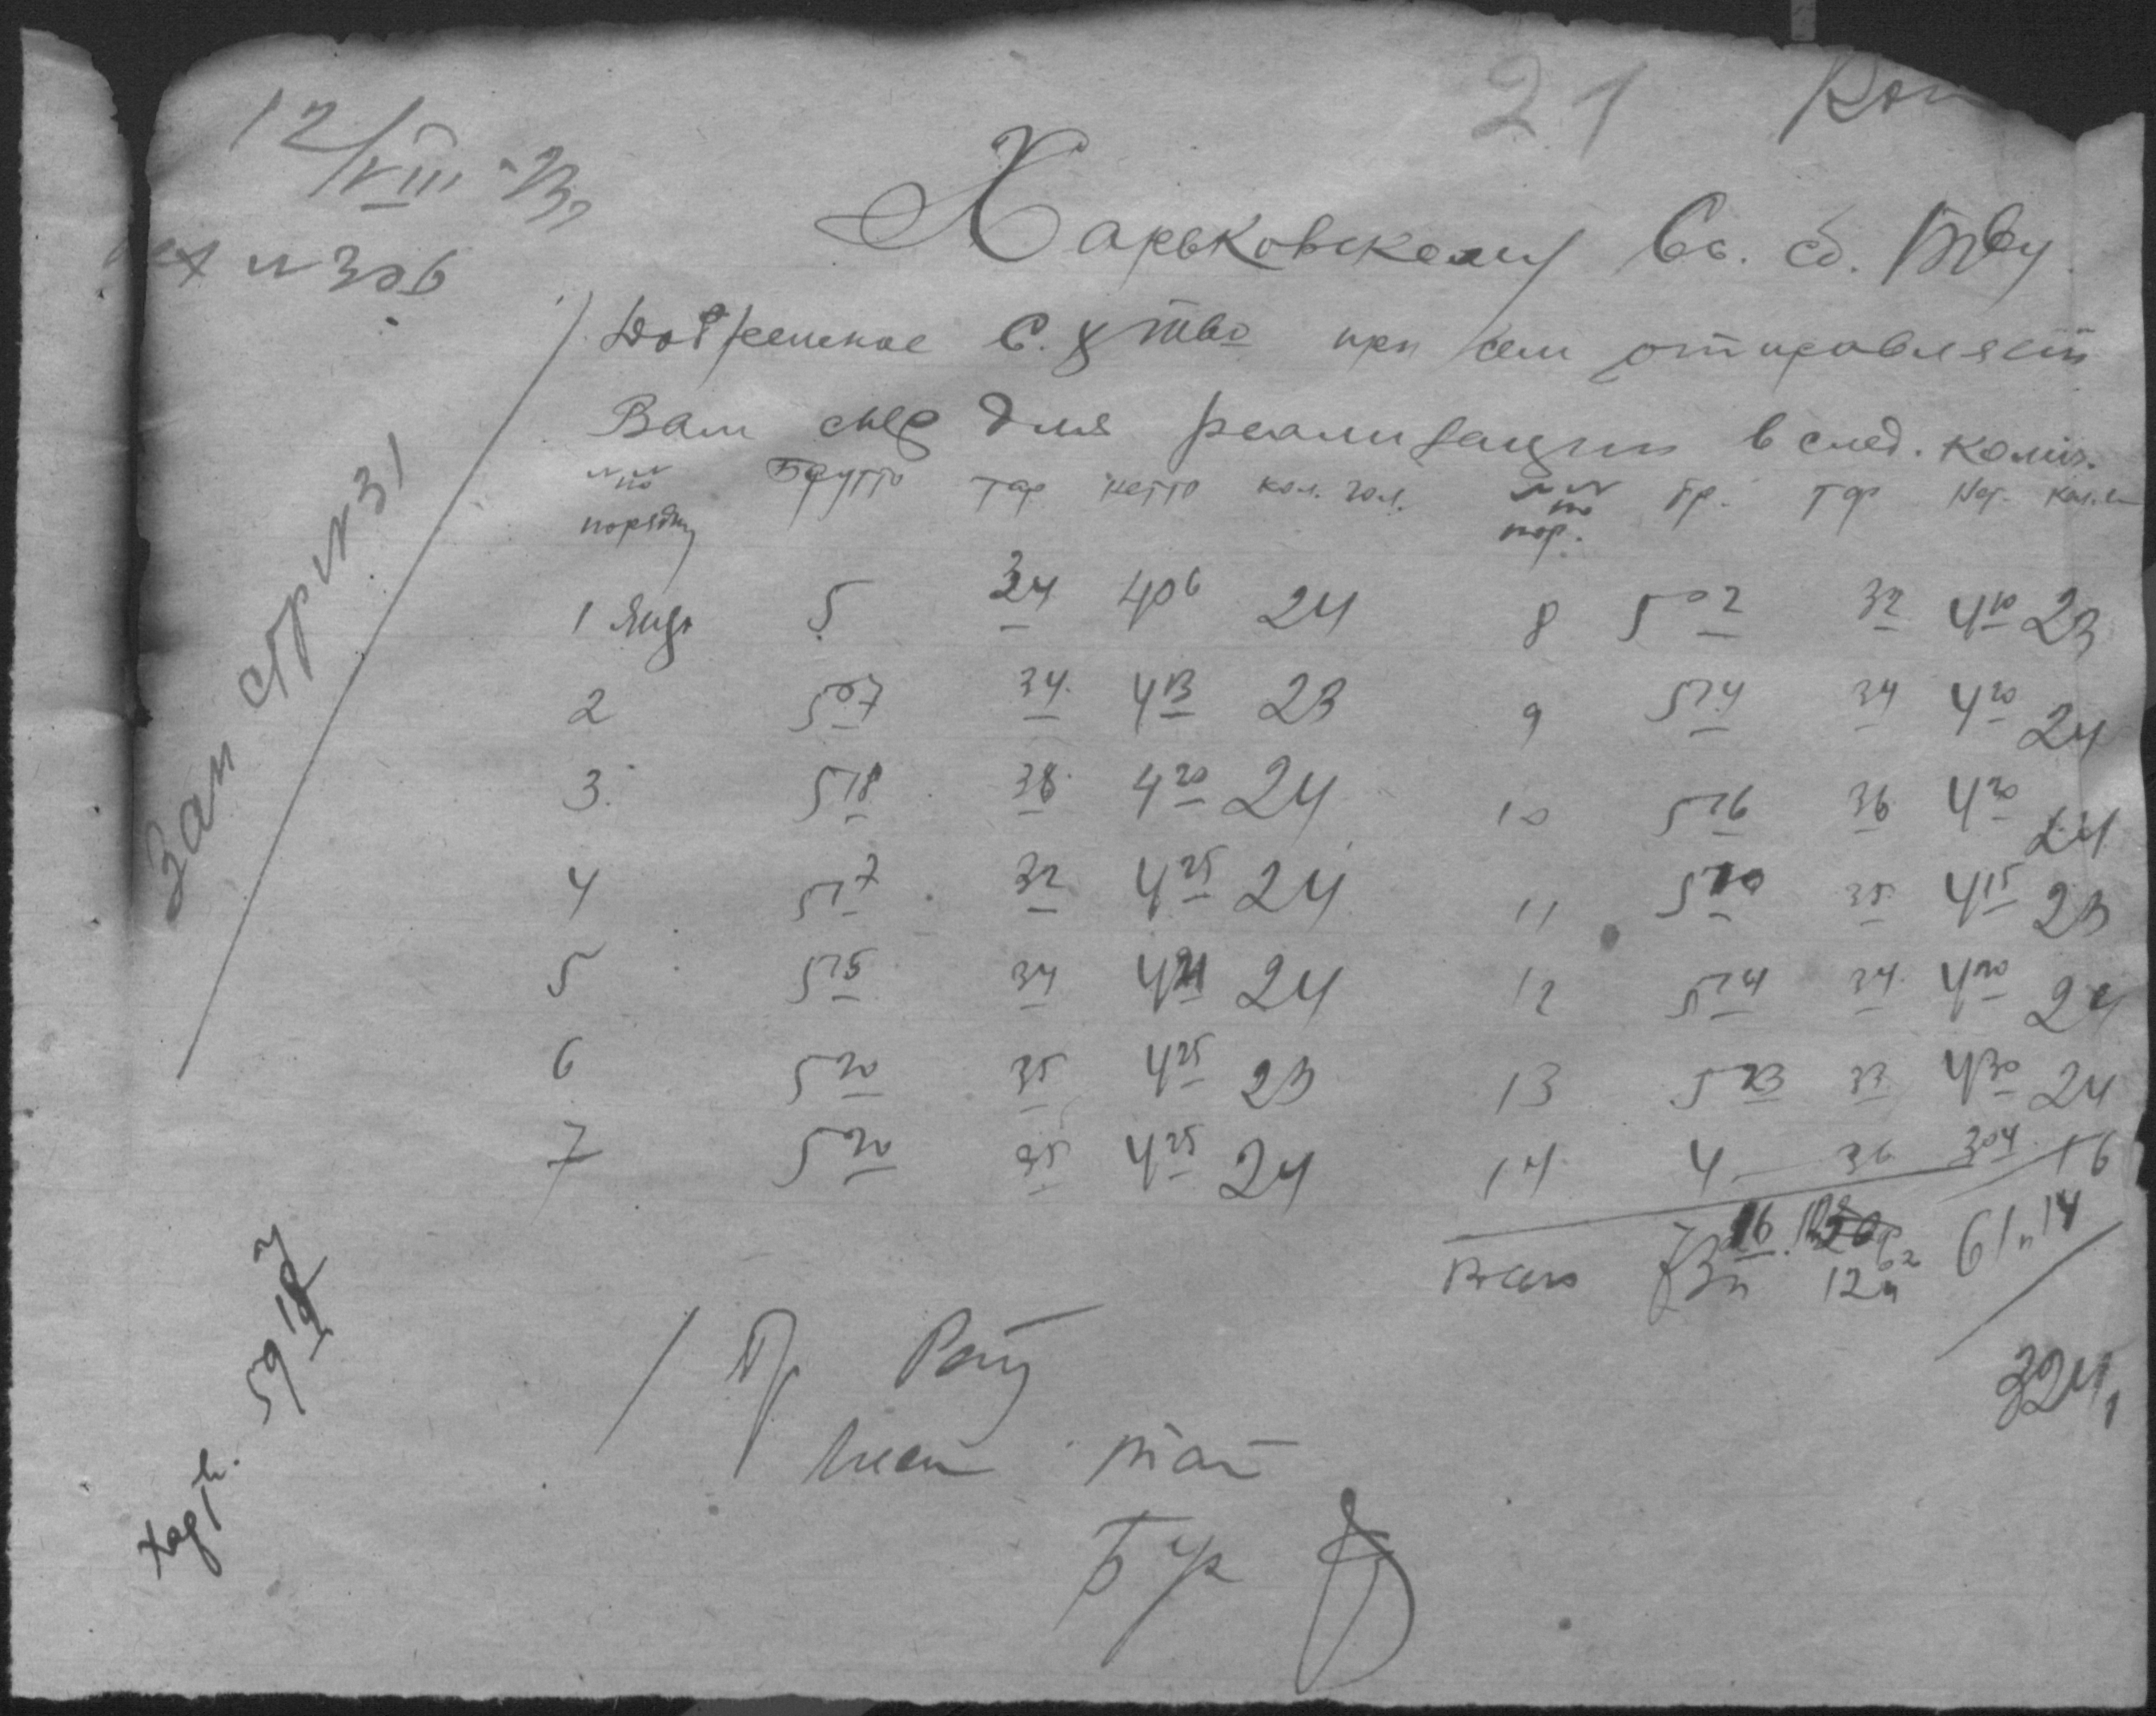 21 Коп
12/VIII-23
№ 306
Харьковскому Со. Об. Тву
С. Х тво при сем отправляет
Вам сыр для реализации в след. колич.
№№ по порядку Брутто тар нетто кол. гол. №№ по пор. Бр. тар Нет. Кол.
1 Ящ. 5 34 4 06 24 8 5 02 32 4 10 23
2 5 07 34 4 13 23 9 5 14 34 4 20 24
3. 5 18 38 4 20 24 10 5 16 36 4 20 24
4 5 17 32 4 25 24 11 5 10 35 4 15 23
5 5 15 34 4 21 24 12 5 14 34 4 20 24
6 5 20 35 4 25 23 13 5 23 33 4 30 24
7 5 20 35 4 25 24 14 4 36 3 04 16
Всего 73п 16 12п 61п 14
324
Зап стр № 31
59 18